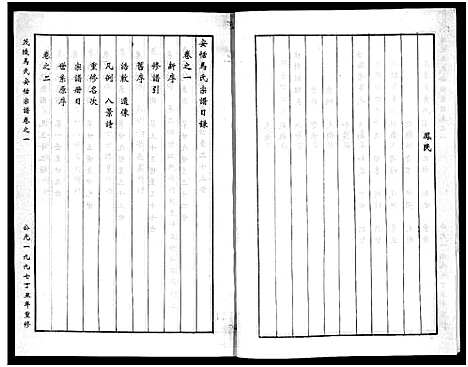 鳳民
安恬馬氏宗譜目錄
卷之一
新序
修譜引
舊序
譜敕 遺像
凡例 八景詩
重修名次
宗譜册目
世系原序
卷之二
茂陵馬氏安恬宗譜卷之一
公元一九九七丁丑年重修